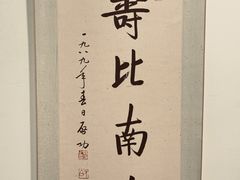 壽比南
一九八九年春日啟功